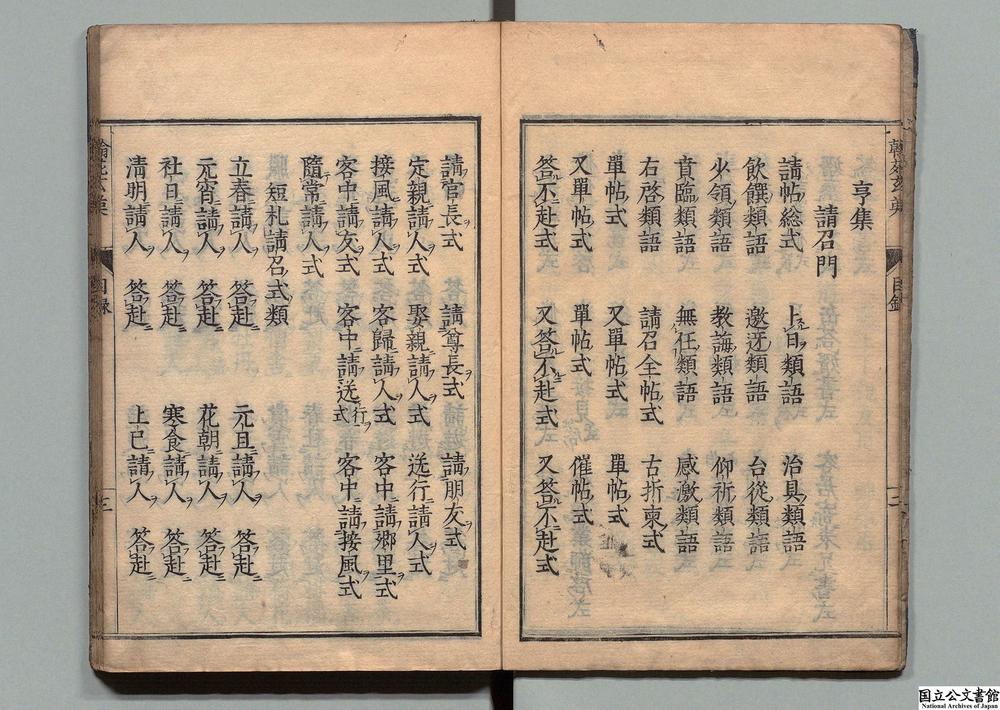 亨集
請召門
請帖総式　上旨類語　治具類語
飲饌類語　邀迓類語　台從類語
少領類語　教誨類語　仰祈類語
賁臨類語　無任類語　感激類語
右啓類語　請召全帖式　古折柬式
單帖式　又單帖式　單帖式
又單帖式　單帖式　催帖式
答不赴式　又答不赴式　又答不赴式
請官長式　請尊長式　請朋友式
定親請人式　娶親請人式　送行請人式
接風請人式　客歸請人式　客中請郷里式
客中請友式　客中請送行式　客中請接風式
隨常請人式
短札請召式類
立春請人　答赴　元旦請人　答赴
元宵請人　答赴　花朝請人　答赴
社日請人　答赴　寒食請人　答赴
淸明請人　答赴　上巳請人　答赴
目錄
三
国立公文書館
National Archives of Japan